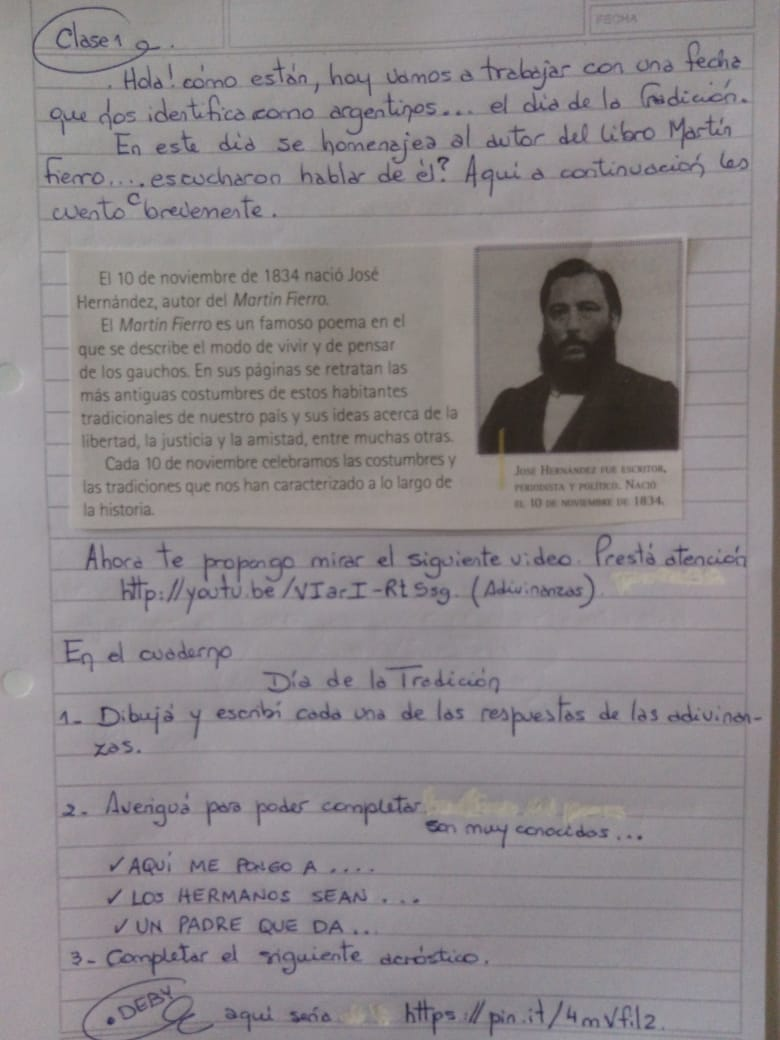 FECHA
Clase 1
Hola! cómo están, hoy vamos a trabajar con una fecha
que nos identifica como argentinos... el dia de la Tradición.
En este día se homenajea al autor del libro Martín
Fierro.... escucharon hablar de él? Aqui a continuación les
cuento brevemente.
El 10 de noviembre de 1834 nació José
Hernández, autor del Martín Fierro.
El Martín Fierro es un famoso poema en el
que se describe el modo de vivir y de pensar
de los gauchos. En sus páginas se retratan las
más antiguas costumbres de estos habitantes
tradicionales de nuestro país y sus ideas acerca de la
libertad, la justicia y la amistad, entre muchas otras.
Cada 10 de noviembre celebramos las costumbres y
las tradiciones que nos han caracterizado a lo largo de
la historia.
José Hernández fue escritor,
periodista y político. Nació
el 10 de noviembre de 1834.
Ahora te propongo mirar el siguiente video. Prestá atención
(Adivinanzas)
En el cuaderno
Día de la Tradición
1- Dibujá y escribí cada una de las respuestas de las adivinan-
zas.
2- Averiguá para poder completar
son muy conocidos...
✓ AQUÍ ME PONGO A ....
✓ LOS HERMANOS SEAN ...
✓ UN PADRE QUE DA...
3- Completar el siguiente acróstico.
. DEBY
aqui sería https://pin.it/